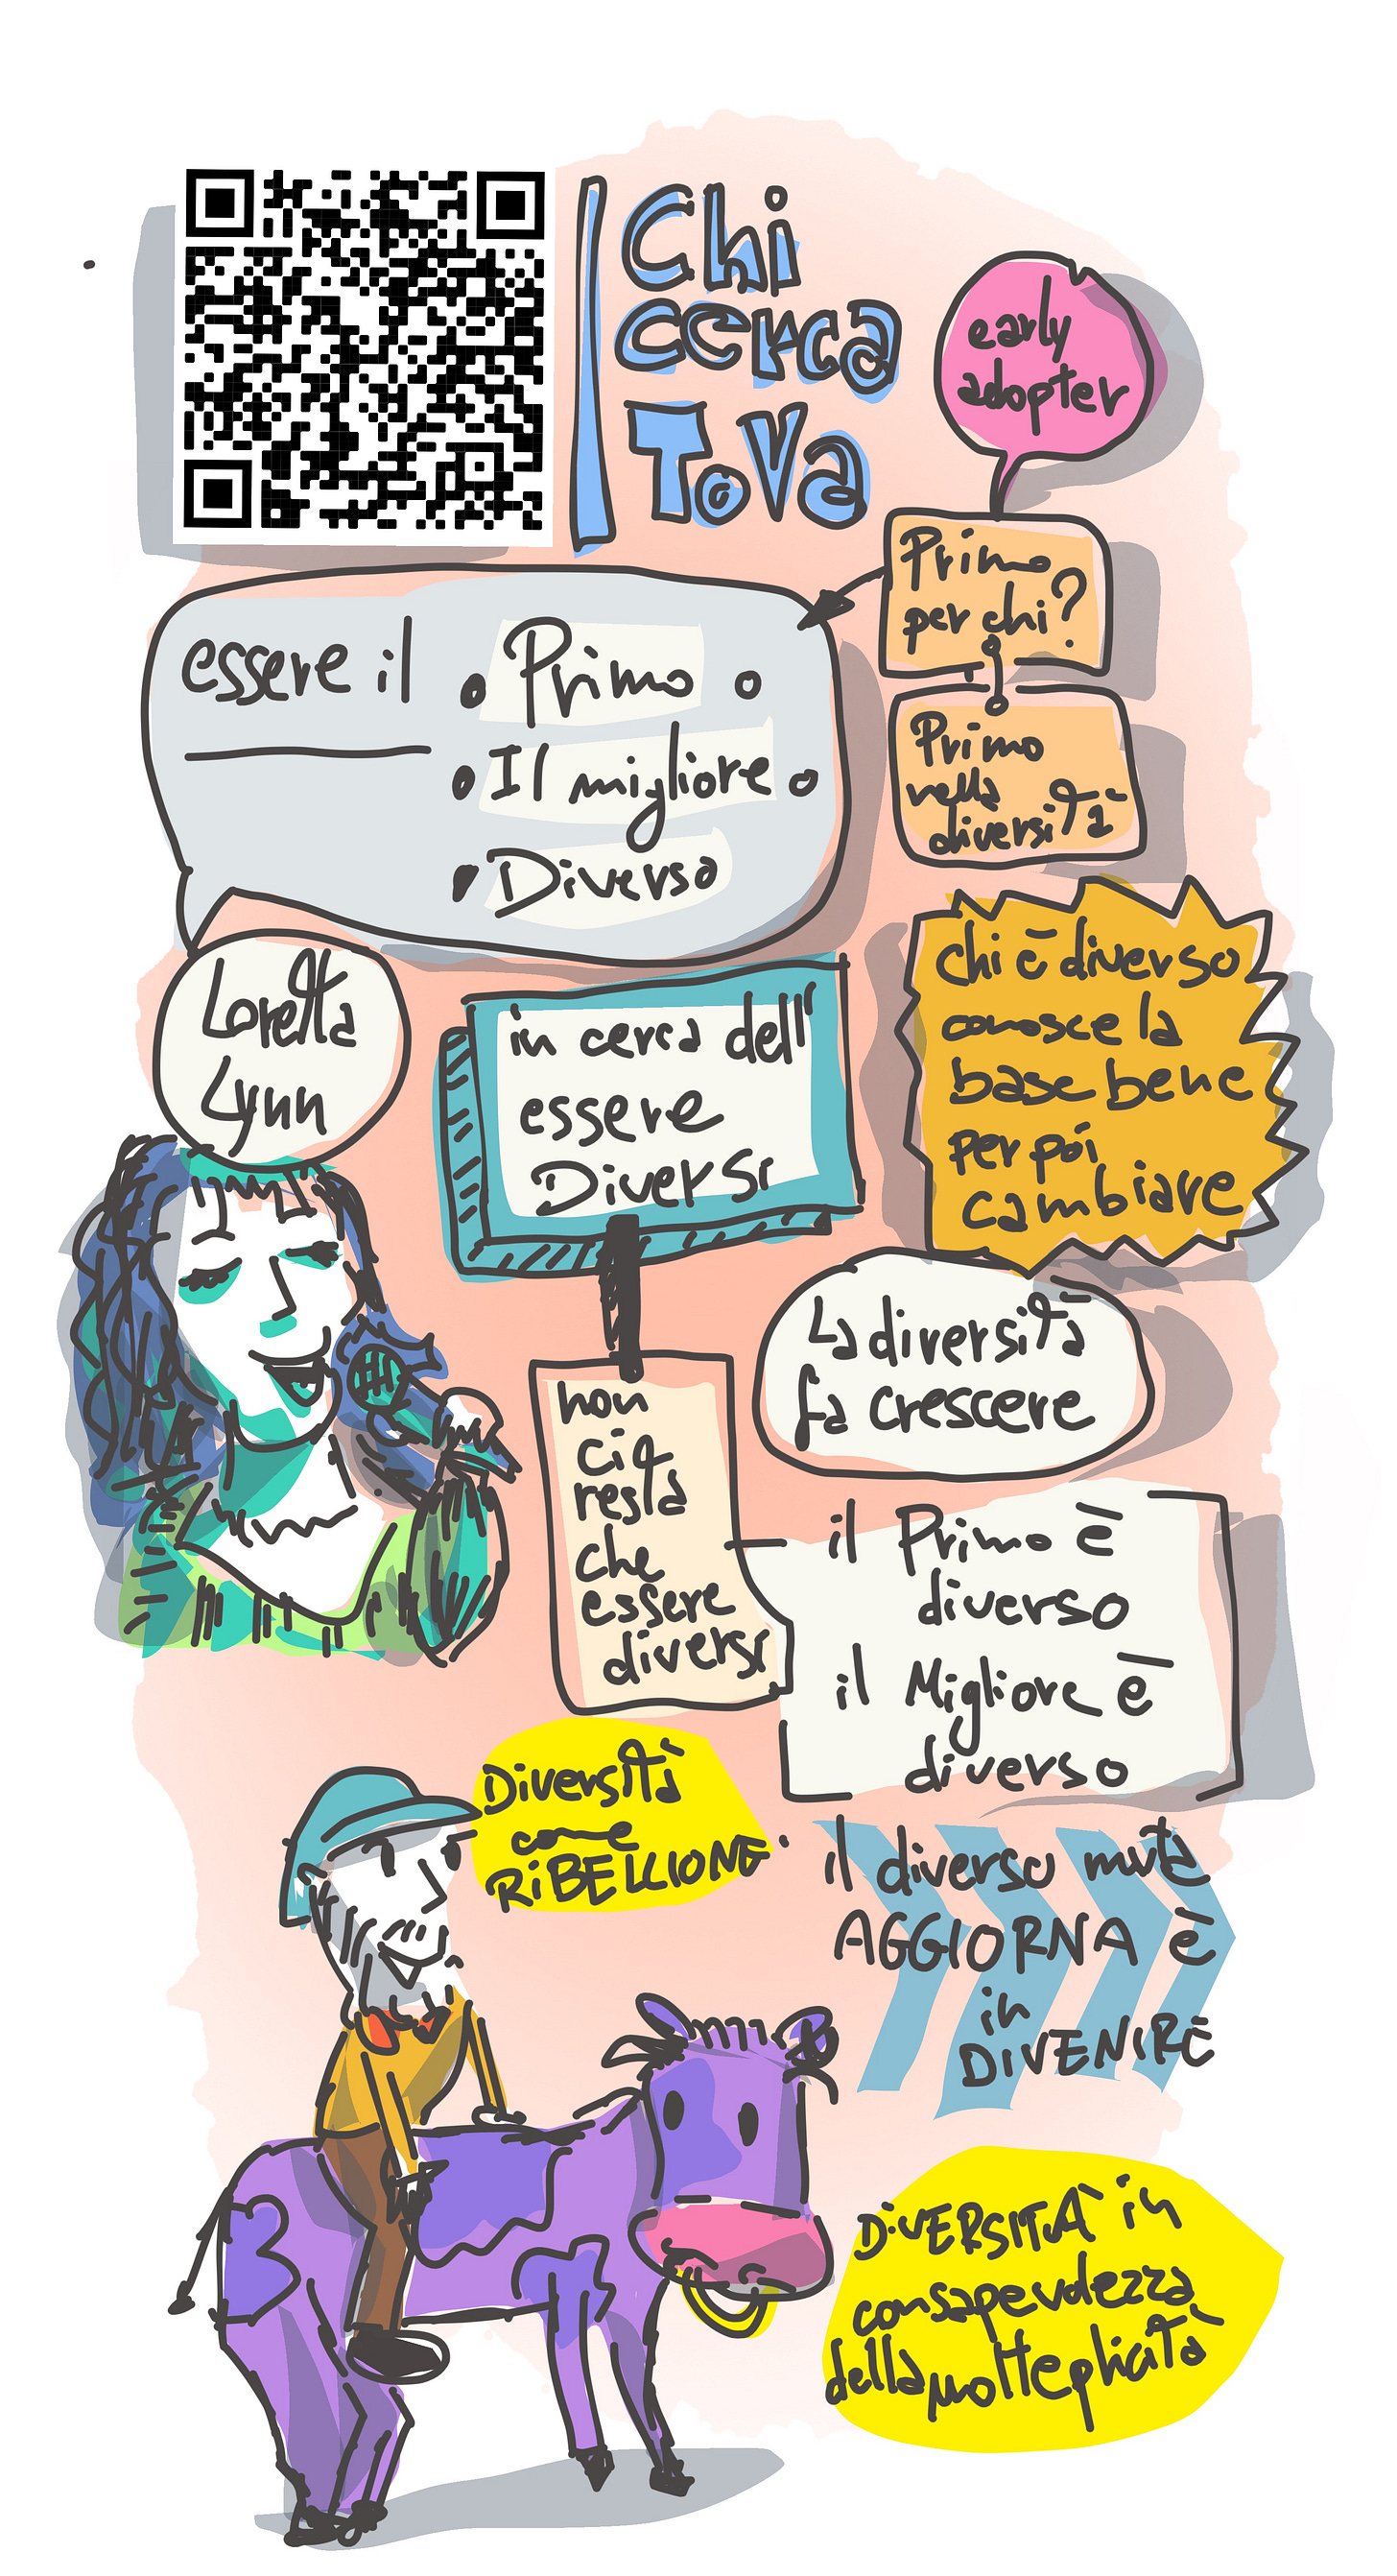 Chi
cerca
ToVa
early
adopter
Primo
per chi?
Primo
nella
diversità
essere il • Primo o
• Il migliore o
• Diverso
Loretta
Lynn
in cerca dell'
essere
Diversi
chi è diverso
conosce la
base bene
per poi
cambiare
La diversità
fa crescere
non
ci
resta
che
essere
diversi
il Primo è
diverso
il Migliore è
diverso
Diversità
come
RiBELLIONE
il diverso muta
AGGIORNA è
in
DIVENIRE
DiVERSITÀ in
consapevolezza
della molteplicità